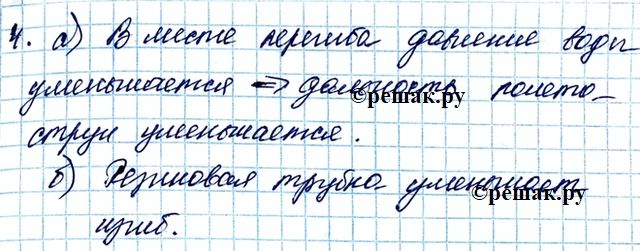 4. а) В месте перегиба давление воды
уменьшается => дальность полета
©решак.ру
струи уменьшается.
б) Резиновая трубка уменьшает
©решак.ру
изгиб.